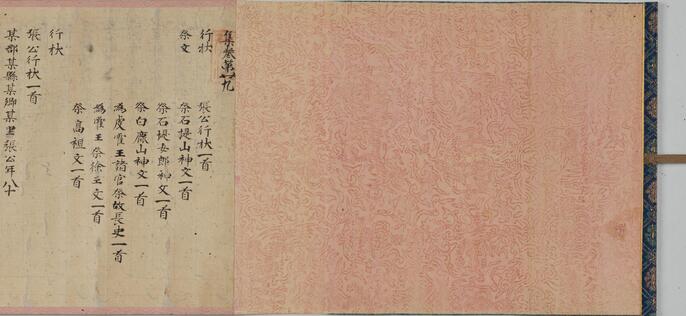 集卷第廿九
行狀　張公行狀一首
祭文　祭石堤山神文一首
祭石堤女郎神文一首
祭白鹿山神文一首
為虔霍王諸官祭故長史一首
為霍王祭徐王文一首
祭高祖文一首
行狀
張公行狀一首
某郡某縣某鄉某里張公年八十